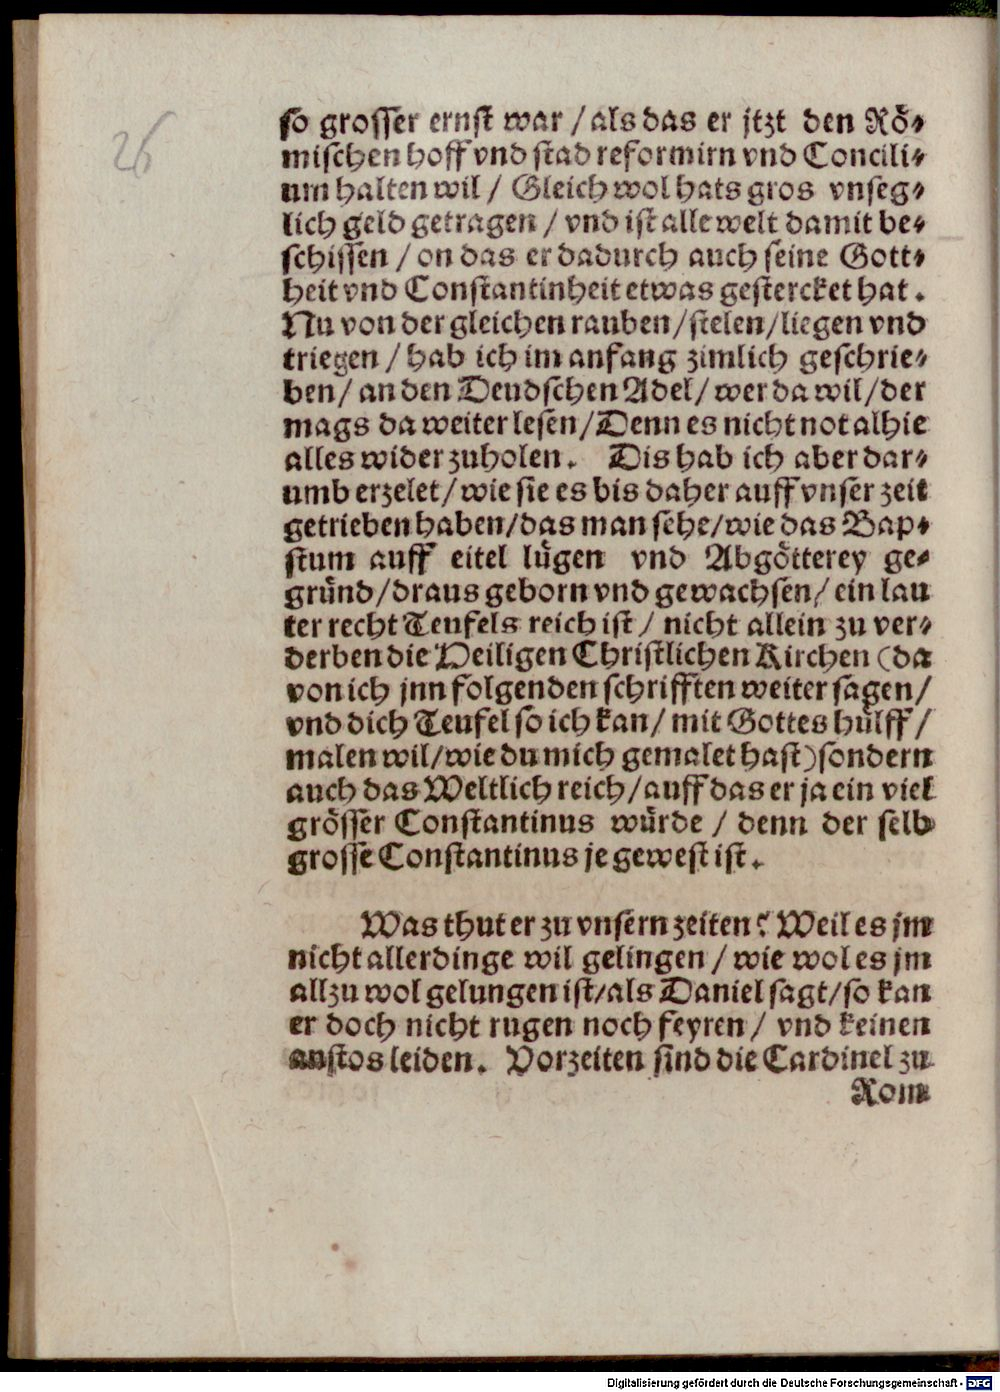 26
so grosser ernst war / als das er jtzt den Rö-
mischen hoff vnd stad reformirn vnd Concili-
um halten wil / Gleich wol hats gros vnseg-
lich geld getragen / vnd ist alle welt damit be-
schissen / on das er dadurch auch seine Gott-
heit vnd Constantinheit etwas gestercket hat.
Nu von der gleichen rauben / stelen / liegen vnd
triegen / hab ich im anfang zimlich geschrie-
ben / an den Deudschen Adel / wer da wil / der
mags da weiter lesen / Denn es nicht not alhie
alles wider zuholen. Dis hab ich aber dar-
umb erzelet / wie sie es bis daher auff vnser zeit
getrieben haben / das man sehe / wie das Bap-
stum auff eitel lügen vnd Abgötterey ge-
gründ / draus geborn vnd gewachsen / ein lau
ter recht Teufels reich ist / nicht allein zu ver-
derben die Heiligen Christlichen Kirchen (da
von ich jnn folgenden schrifften weiter sagen /
vnd dich Teufel so ich kan / mit Gottes hülff /
malen wil / wie du mich gemalet hast) sondern
auch das Weltlich reich / auff das er ja ein viel
grösser Constantinus würde / denn der selb
grosse Constantinus je gewest ist.
Was thut er zu vnsern zeiten? Weil es jm
nicht allerdinge wil gelingen / wie wol es jm
allzu wol gelungen ist / als Daniel sagt / so kan
er doch nicht rugen noch feyren / vnd keinen
anstos leiden. Vorzeiten sind die Cardinel zu
Rom
Digitalisierung gefördert durch die Deutsche Forschungsgemeinschaft - DFG